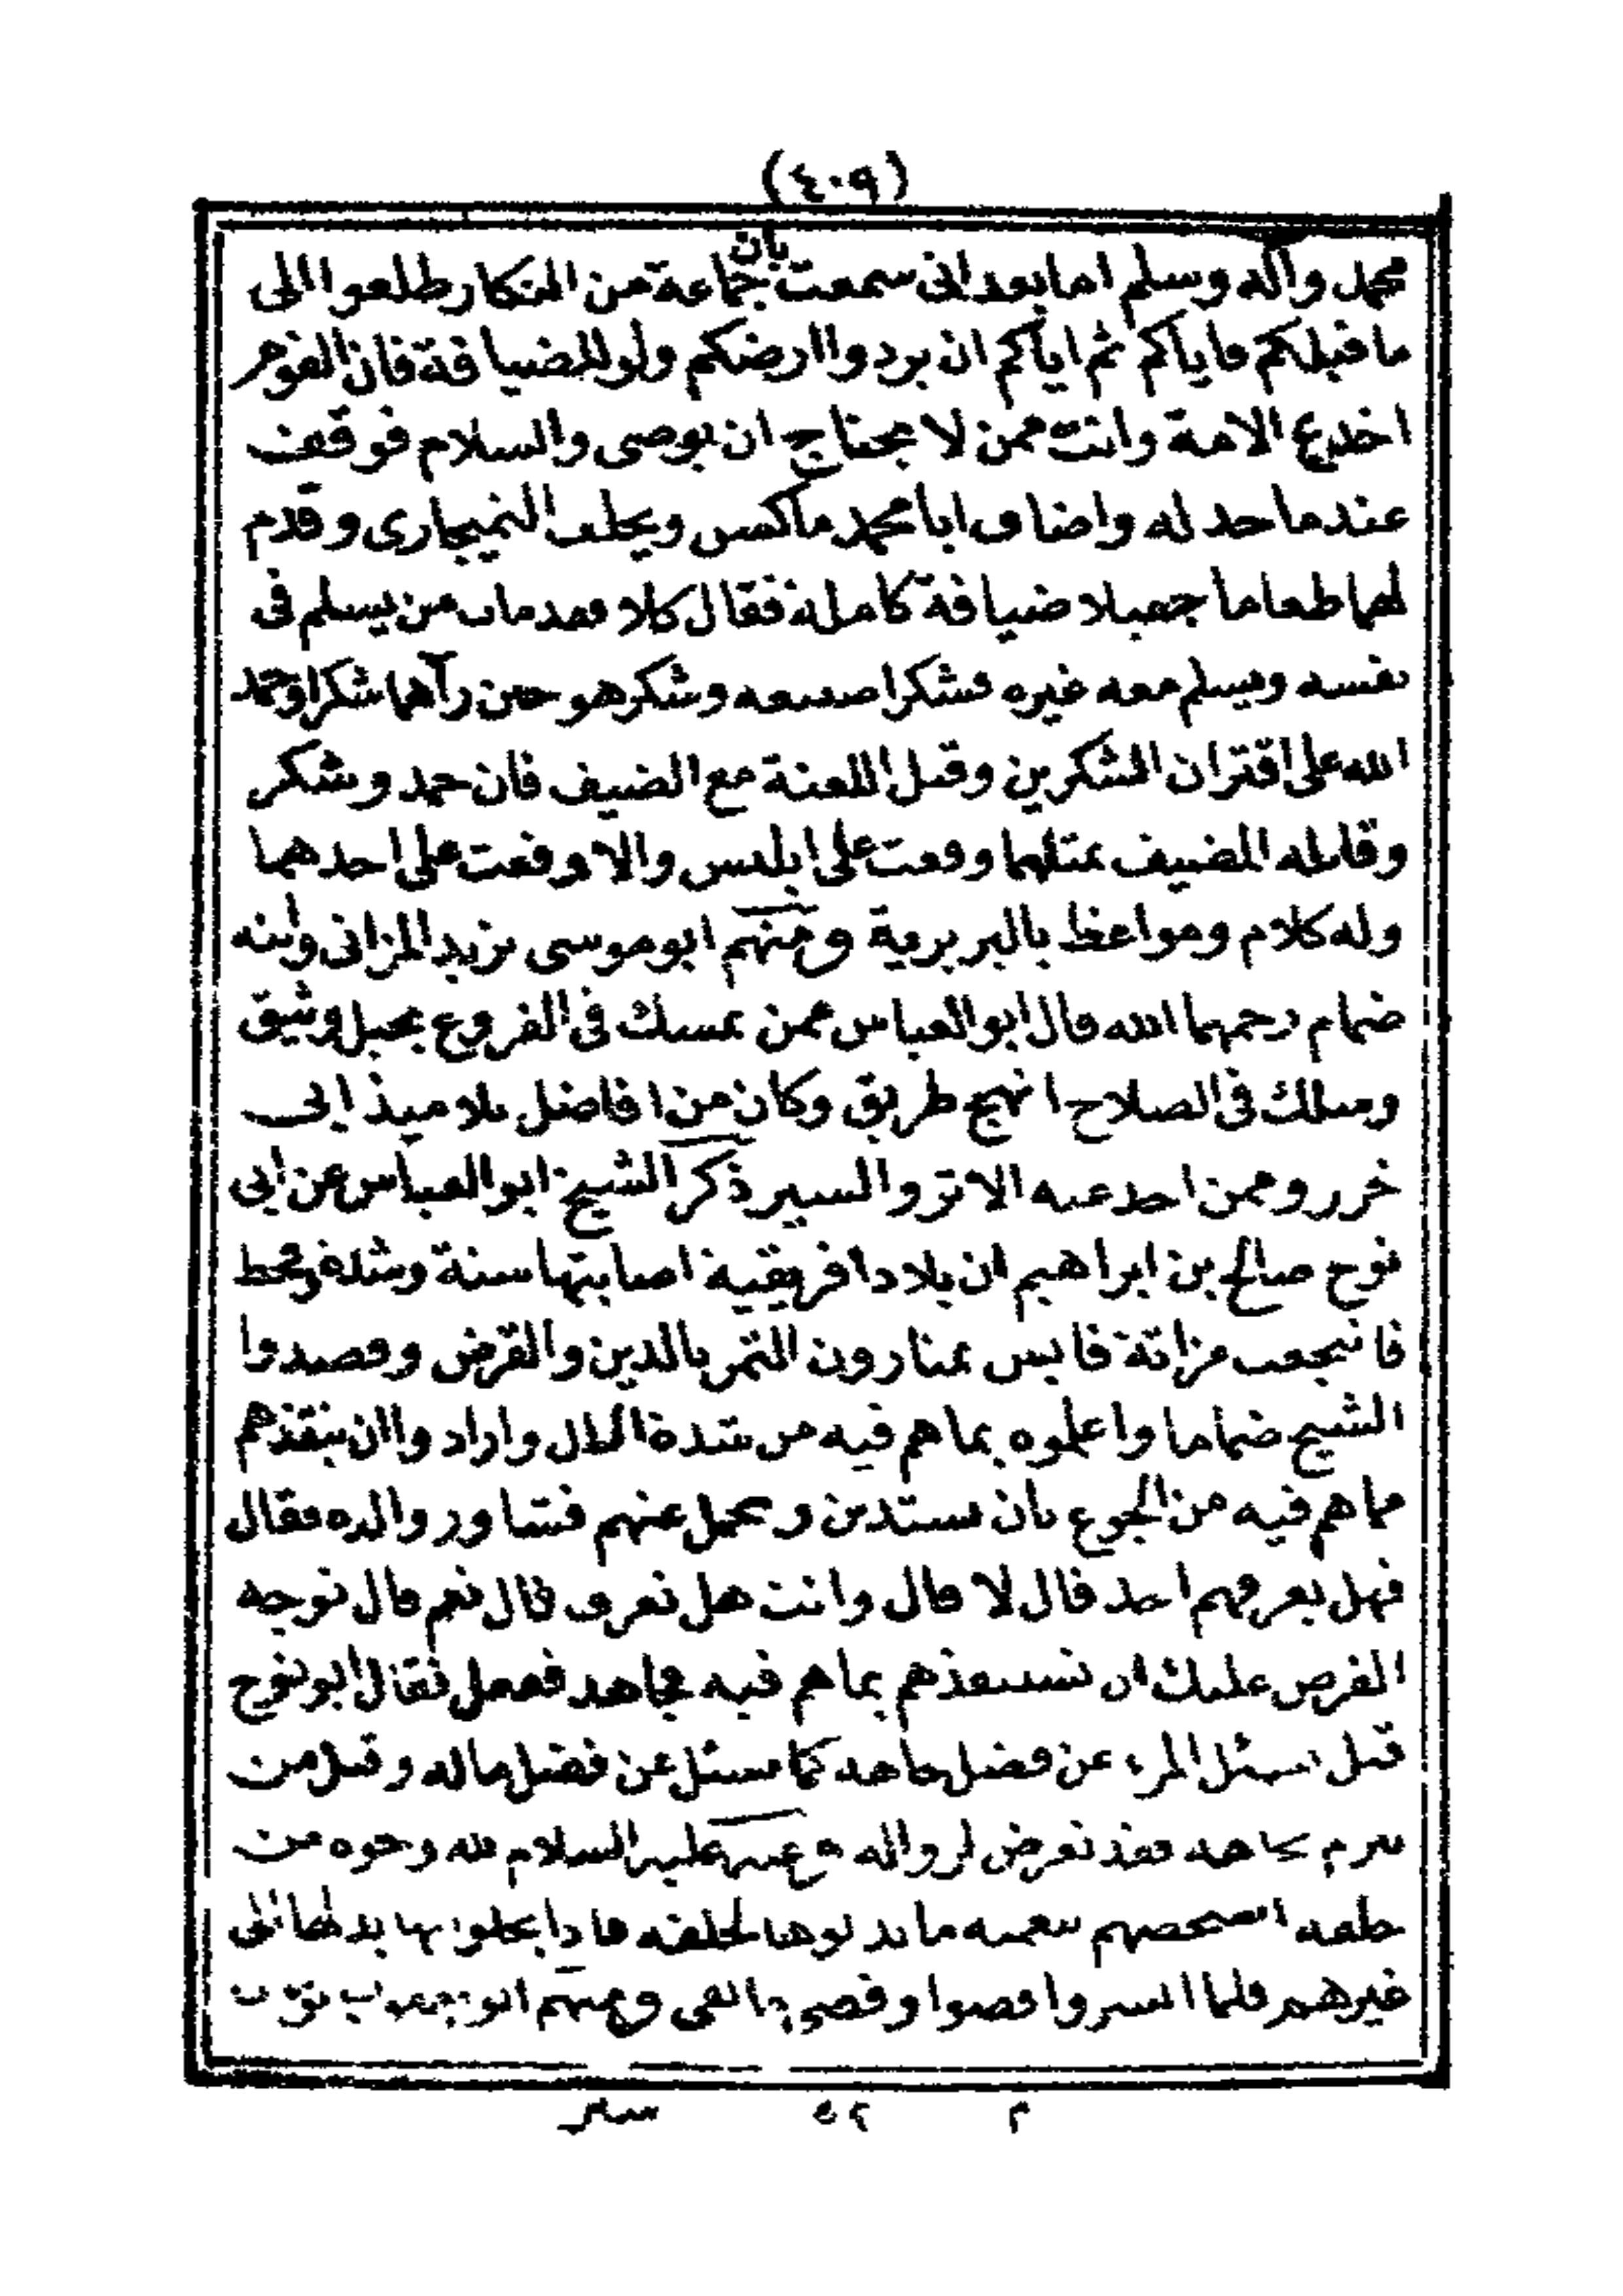 (٤٠٩)
محمد وآله وسلم اما بعد انى سمعت بان جماعة من النكار طلعوا الى
ما قبلكم فاياكم ثم اياكم ان يردوا ارضكم ولو للضيافة فان القوم
اخدع الامة وانت ممن لا يحتاج ان يوصى والسلام فوقف
عند ما حد له واضاف ابا محمد ماكسن ويخلف النميجارى وقدم
لهما طعاما جميلا ضيافة كاملة فقال كلا فقد مات من يسلم فى
نفسه ويسلم معه غيره فشكرا صنيعه وشكر هو حين رآهما شكرا وحمد
الله على اقتران الشكرين وقيل اللعنة مع الضيف فان حمد وشكر
وقابله المضيف بمثلهما وقعت على ابليس والا وقعت على احدهما
وله كلام ومواعظ بالبربرية ومنهم ابو موسى يزيد المزاتى وابنه
ضمام رحمهما الله قال ابو العباس ممن تمسك فى الفروع بحبل وثيق
وسلك فى الصلاح انهج طريق وكان من افاضل تلاميذ ابى
خزر وممن اخذ عنه الاثر والسير ذكر الشيخ ابو العباس عن ابى
نوح صالح بن ابراهيم ان بلاد افريقية اصابتها سنة وشدة وقحط
فانتجعت مزاتة قابس يمتارون التمر بالدين والقرض وقصدوا
الشيخ ضماما واعلموه بما هم فيه من شدة الحال وارادوا ان ينقذهم
مما هم فيه من الجوع بان يستدين ويحمل عنهم فشاور والده فقال
فهل يعرفهم احد قال لا قال وانت هل تعرف قال نعم قال توجه
الفرض عليك ان تستنقذهم بما هم فيه بجاهد ففعل فقال ابو نوح
قيل يسئل المرء عن فضل جاهه كما يسئل عن فضل ماله وقيل من
حرم جاهه فقد تعرض لزواله وعنه عليه السلام لله وجوه من
خلقه بنعمه ما بذلوها لخلقه فاذا بخلوا بها بدلها الى
غيرهم فلما ايسروا قضوا وقضى ما بقى ومنهم ابو
م ٥٢ سير